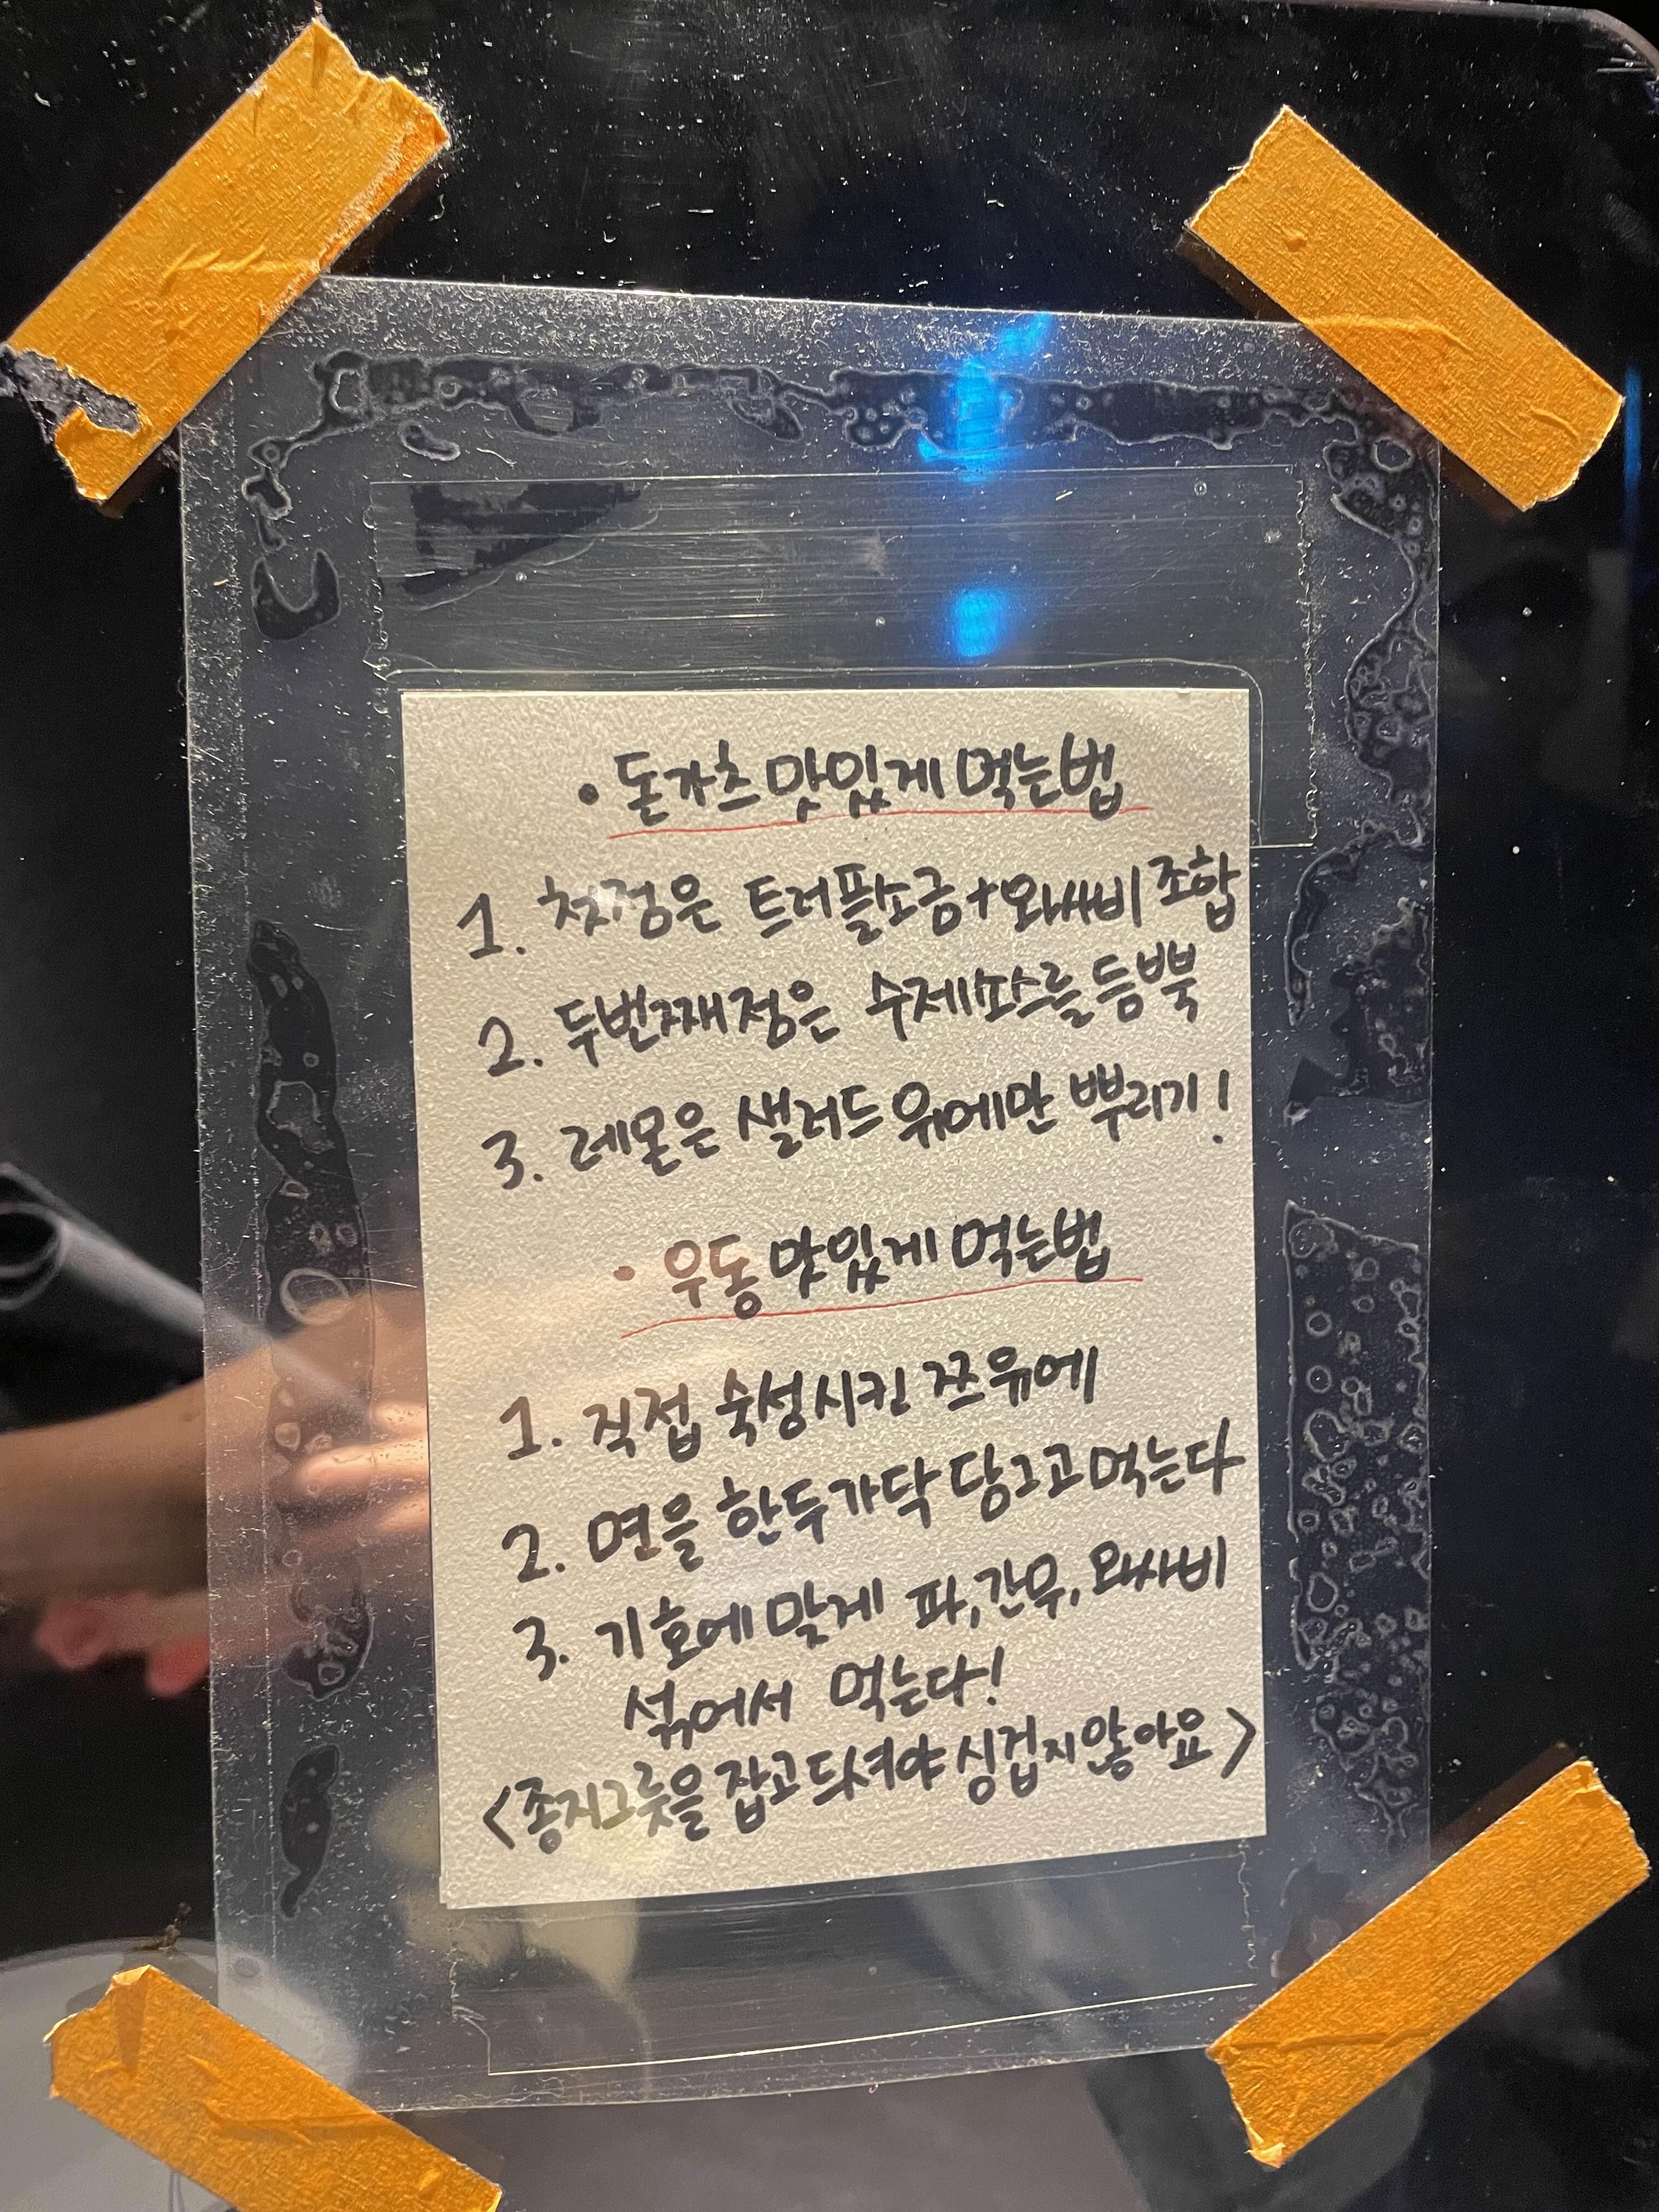 • 돈카츠 맛있게 먹는법
1. 첫점은 트러플소금+와사비 조합
2. 두번째점은 수제소스를 듬뿍
3. 레몬은 샐러드 위에만 뿌리기!
• 우동 맛있게 먹는법
1. 직접 숙성시킨 쯔유에
2. 면을 한두가닥 담그고 먹는다
3. 기호에 맞게 파, 간무, 와사비
섞어서 먹는다!
<종지그릇을 잡고 드셔야 싱겁지 않아요>